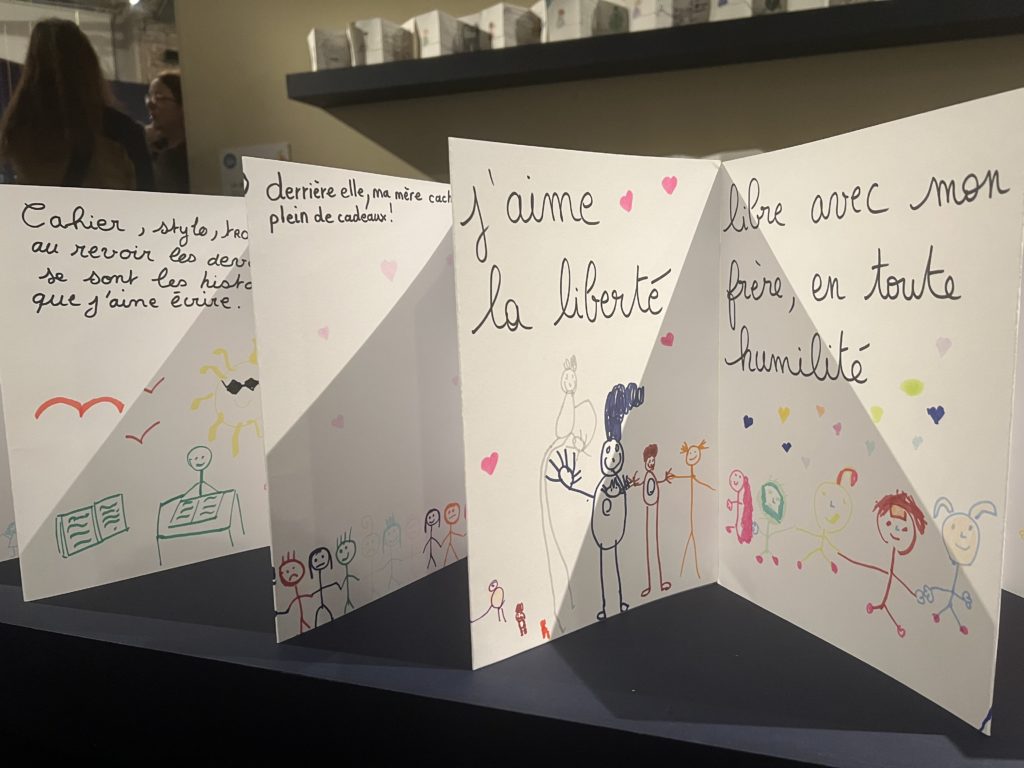 Cahier, stylo,
au revoir les
se sont les
que j'aime écrire.
derrière elle, ma mère
plein de cadeaux!
j'aime
la liberté
libre avec mon
frère, en toute
humilité